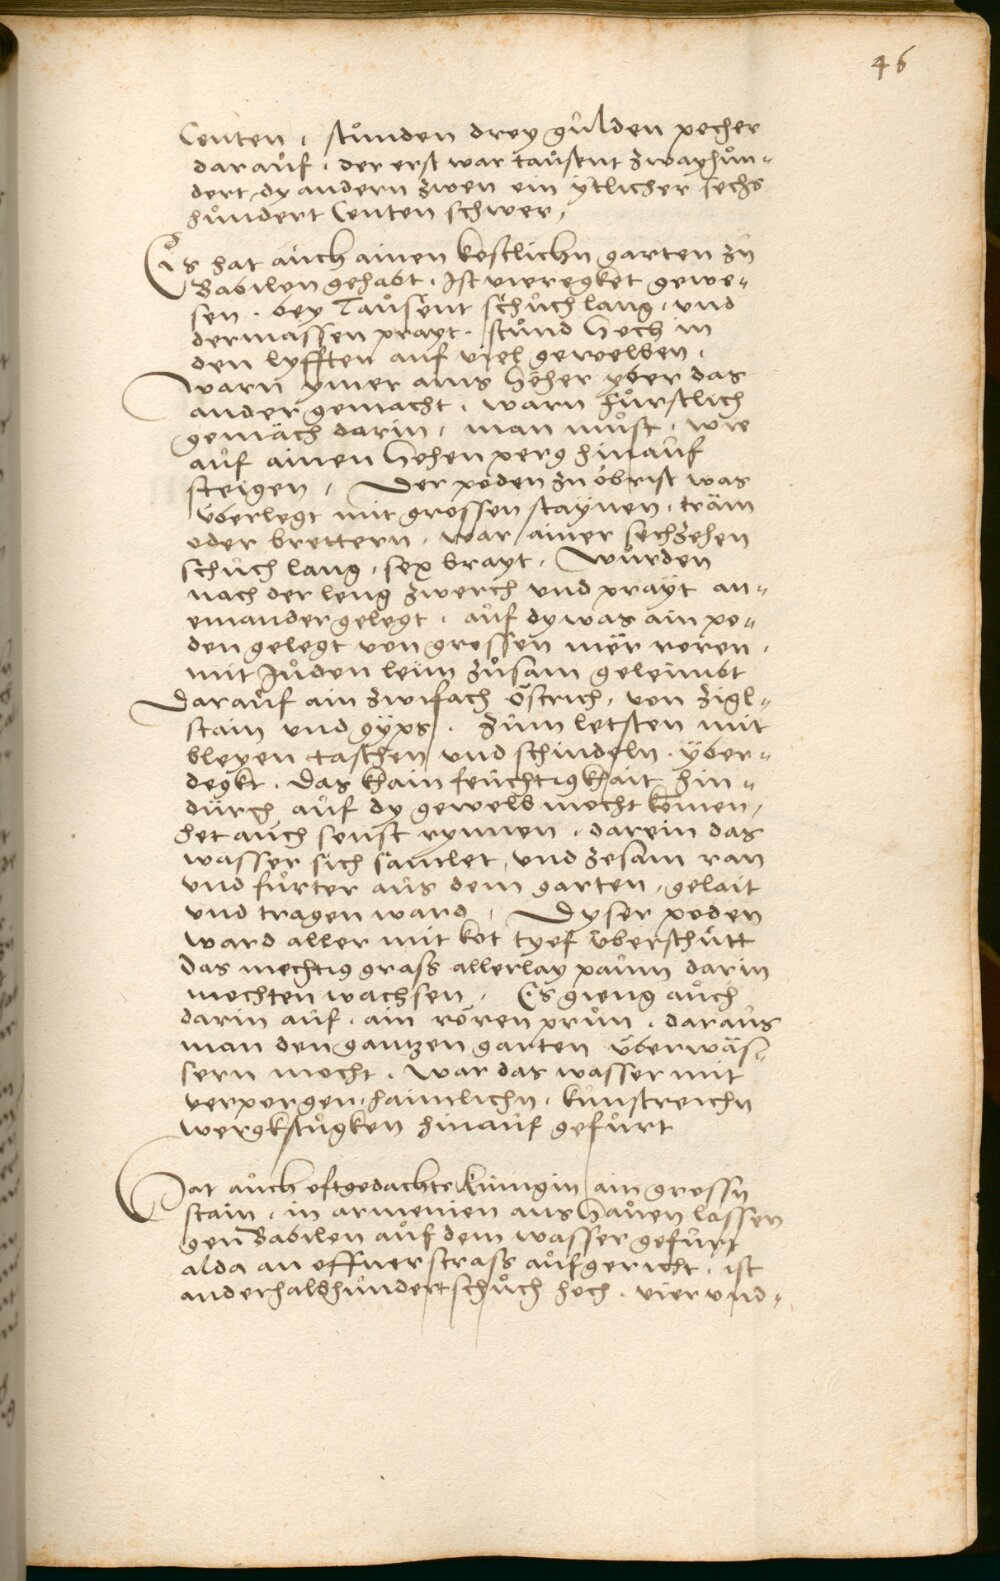 46
Centen, stůnden drey gůlden pecher
darauf. der erst war taůsent zwayhůn=
dert, dy andern zwen ein ytlicher sechs
hůndert Centen schwer,
Es hat auch ainen kostlichn garten zů
Babilen gehabt. Ist vieregket gewe=
sen. bey Taůsent schůch lang, und
dermassen prayt. stůnd hoch in
den lyfften auf viel gewelben.
warn ymer ains höher yber das
ander gemacht. warn fůrstlich
gemäch darin, man můst, wie
auf ainen hohen perg hinauf
steigen, Der poden zu öbrist was
überlegt mit grossen staynen, träm
oder brettern. war ainer sechzehen
schůch lang, sex brayt. Wůrden
nach der leng zwerch vnd prayt an=
einander gelegt. aůf dy was ain po=
den gelegt von grossen mër roren.
mit Jůden leim zůsam geleimbt
Darauf ain zwifach östrich, von zigl=
stain und gÿps. Zům letsten mit
bleyen taschen und schindeln. yber=
degkt. Das khain feůchtigkhait hin=
dürch auf dy gewelb mocht komen,
het auch sonst rynnen. darein das
wasser sich samlet, und zesam ran
und fůrter aůs dem garten, gelait
und tragen ward, Dyser poden
ward aller mit kot tyef überschůtt
das mechtig gross allerlay paům darin
mochten wachsen. Es gieng aůch
darin auf. ain rören průn. daraůs
man den gantzen garten überwäs=
sern mocht. War das wasser mit
verporgen, haimlichn, kůnstreichn
wergkstůgken hinauf gefůrt
Hat aůch oftgedachte Künigin ain grossn
stain, in armenien aus haůen lassen
gen Babilen aůf dem wasser gefůrt
alda an offner strass aůfgericht. ist
anderhalbhůndert schůch hoch. vier und=